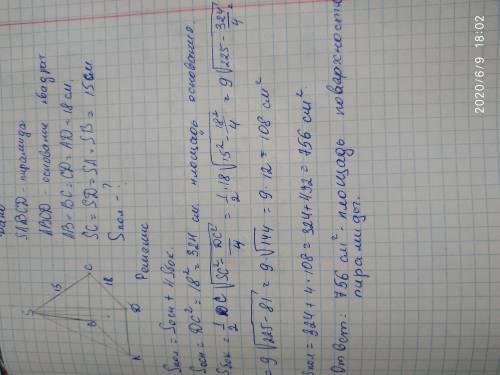 Дано
SABCD - пирамида
ABCD основание квадрат
AB = BC = CD = AD = 18 см.
SC = SD = SA = SB = 15 см
Sпол - ?
S
15
C
18
B
D
A
Решение
Sпол = Sосн + 4 Sбок.
Sосн = DC² = 18² = 324 см. площадь основания.
Sбок = 1/2 DC √(SC² - DC²/4) = 1/2 · 18 √(15² - 18²/4) = 9 √(225 - 324/4) =
= 9 √(225 - 81) = 9 · √144 = 9 · 12 = 108 см²
Sпол = 324 + 4 · 108 = 324 + 432 = 756 см²
Ответ: 756 см² - площадь поверхности
пирамиды.
2020/6/9 18:02